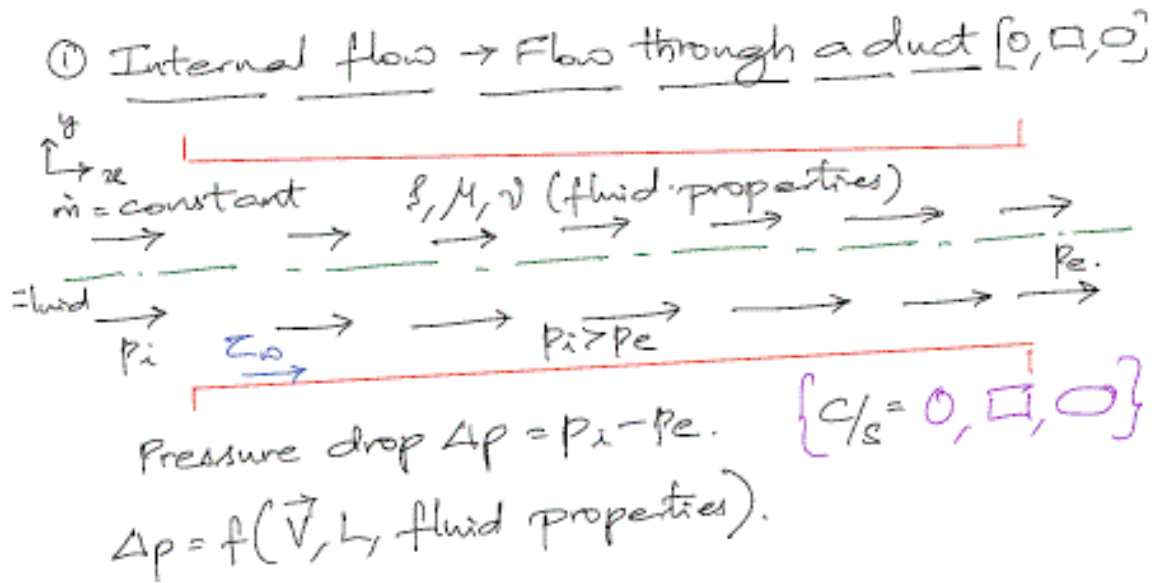 ① Internal flow → Flow through a duct [○, □, ○]
y
x
ṁ = constant ρ, μ, ν (fluid properties)
pe.
=luid
pi τω pi > pe
{C/s = ○, □, ○}
Pressure drop Δp = pi - pe.
Δp = f(V⃗, L, fluid properties).